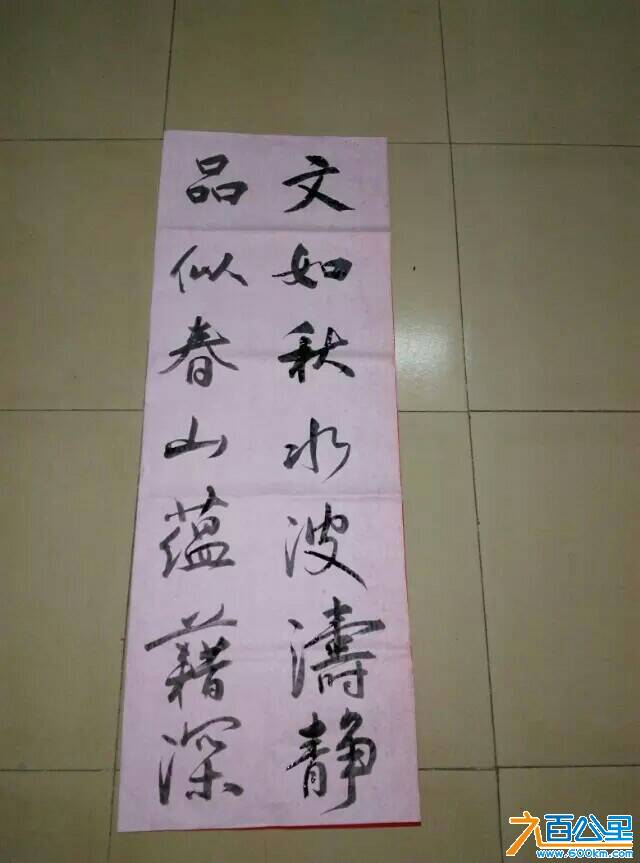 文如秋水波濤静
品似春山蕴藉深
六百公里
www.600km.com